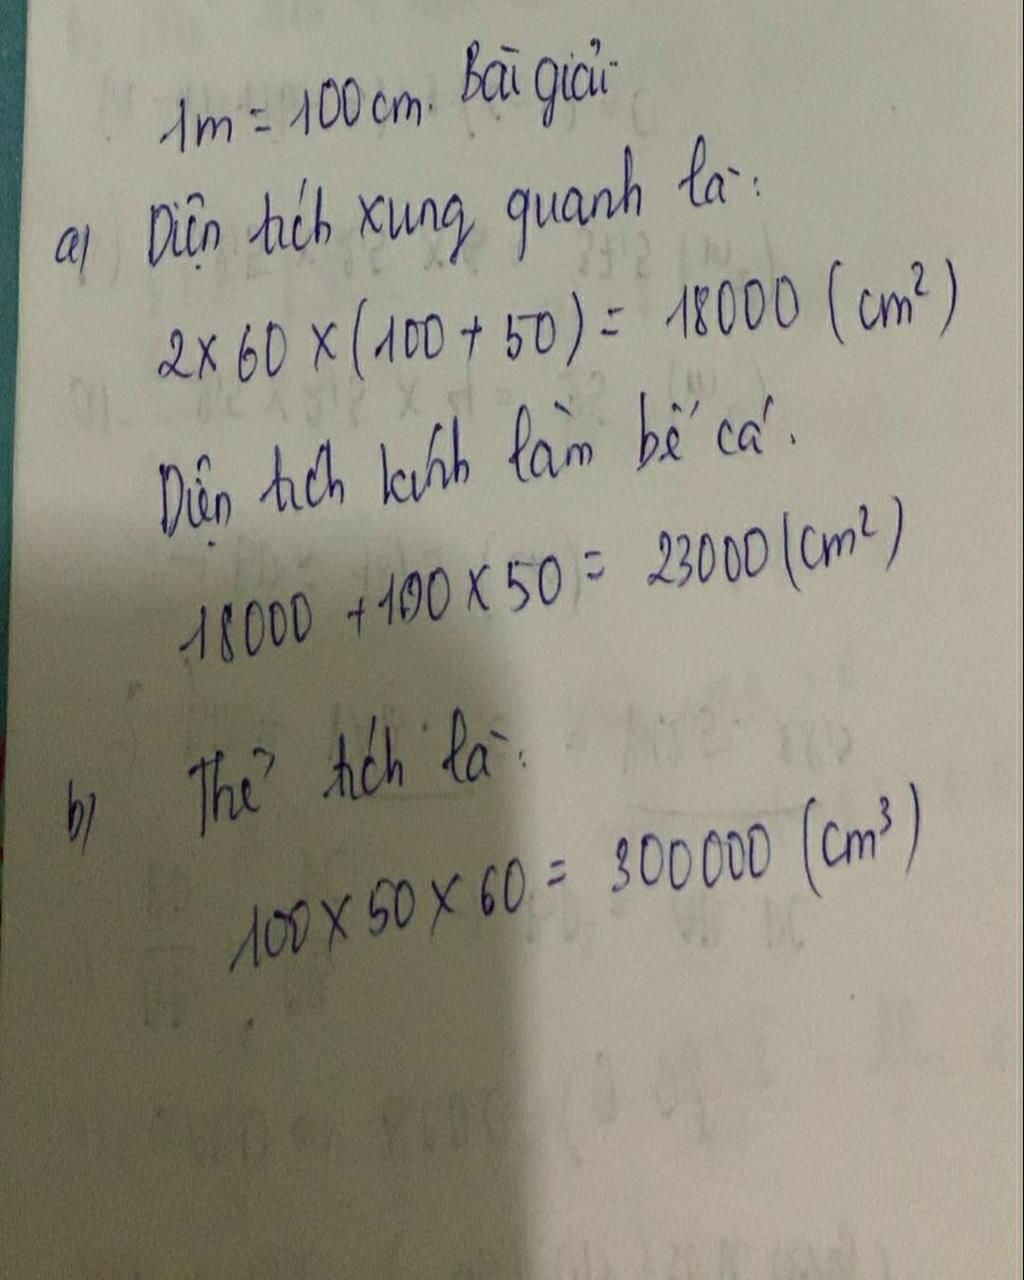 Bài giải
1m = 100cm.
a) Diện tích xung quanh là:
2 x 60 x (100 + 50) = 18000 (cm²)
Diện tích kính làm bể cá.
18000 + 100 x 50 = 23000 (cm²)
b) Thể tích là:
100 x 50 x 60 = 300000 (cm³)